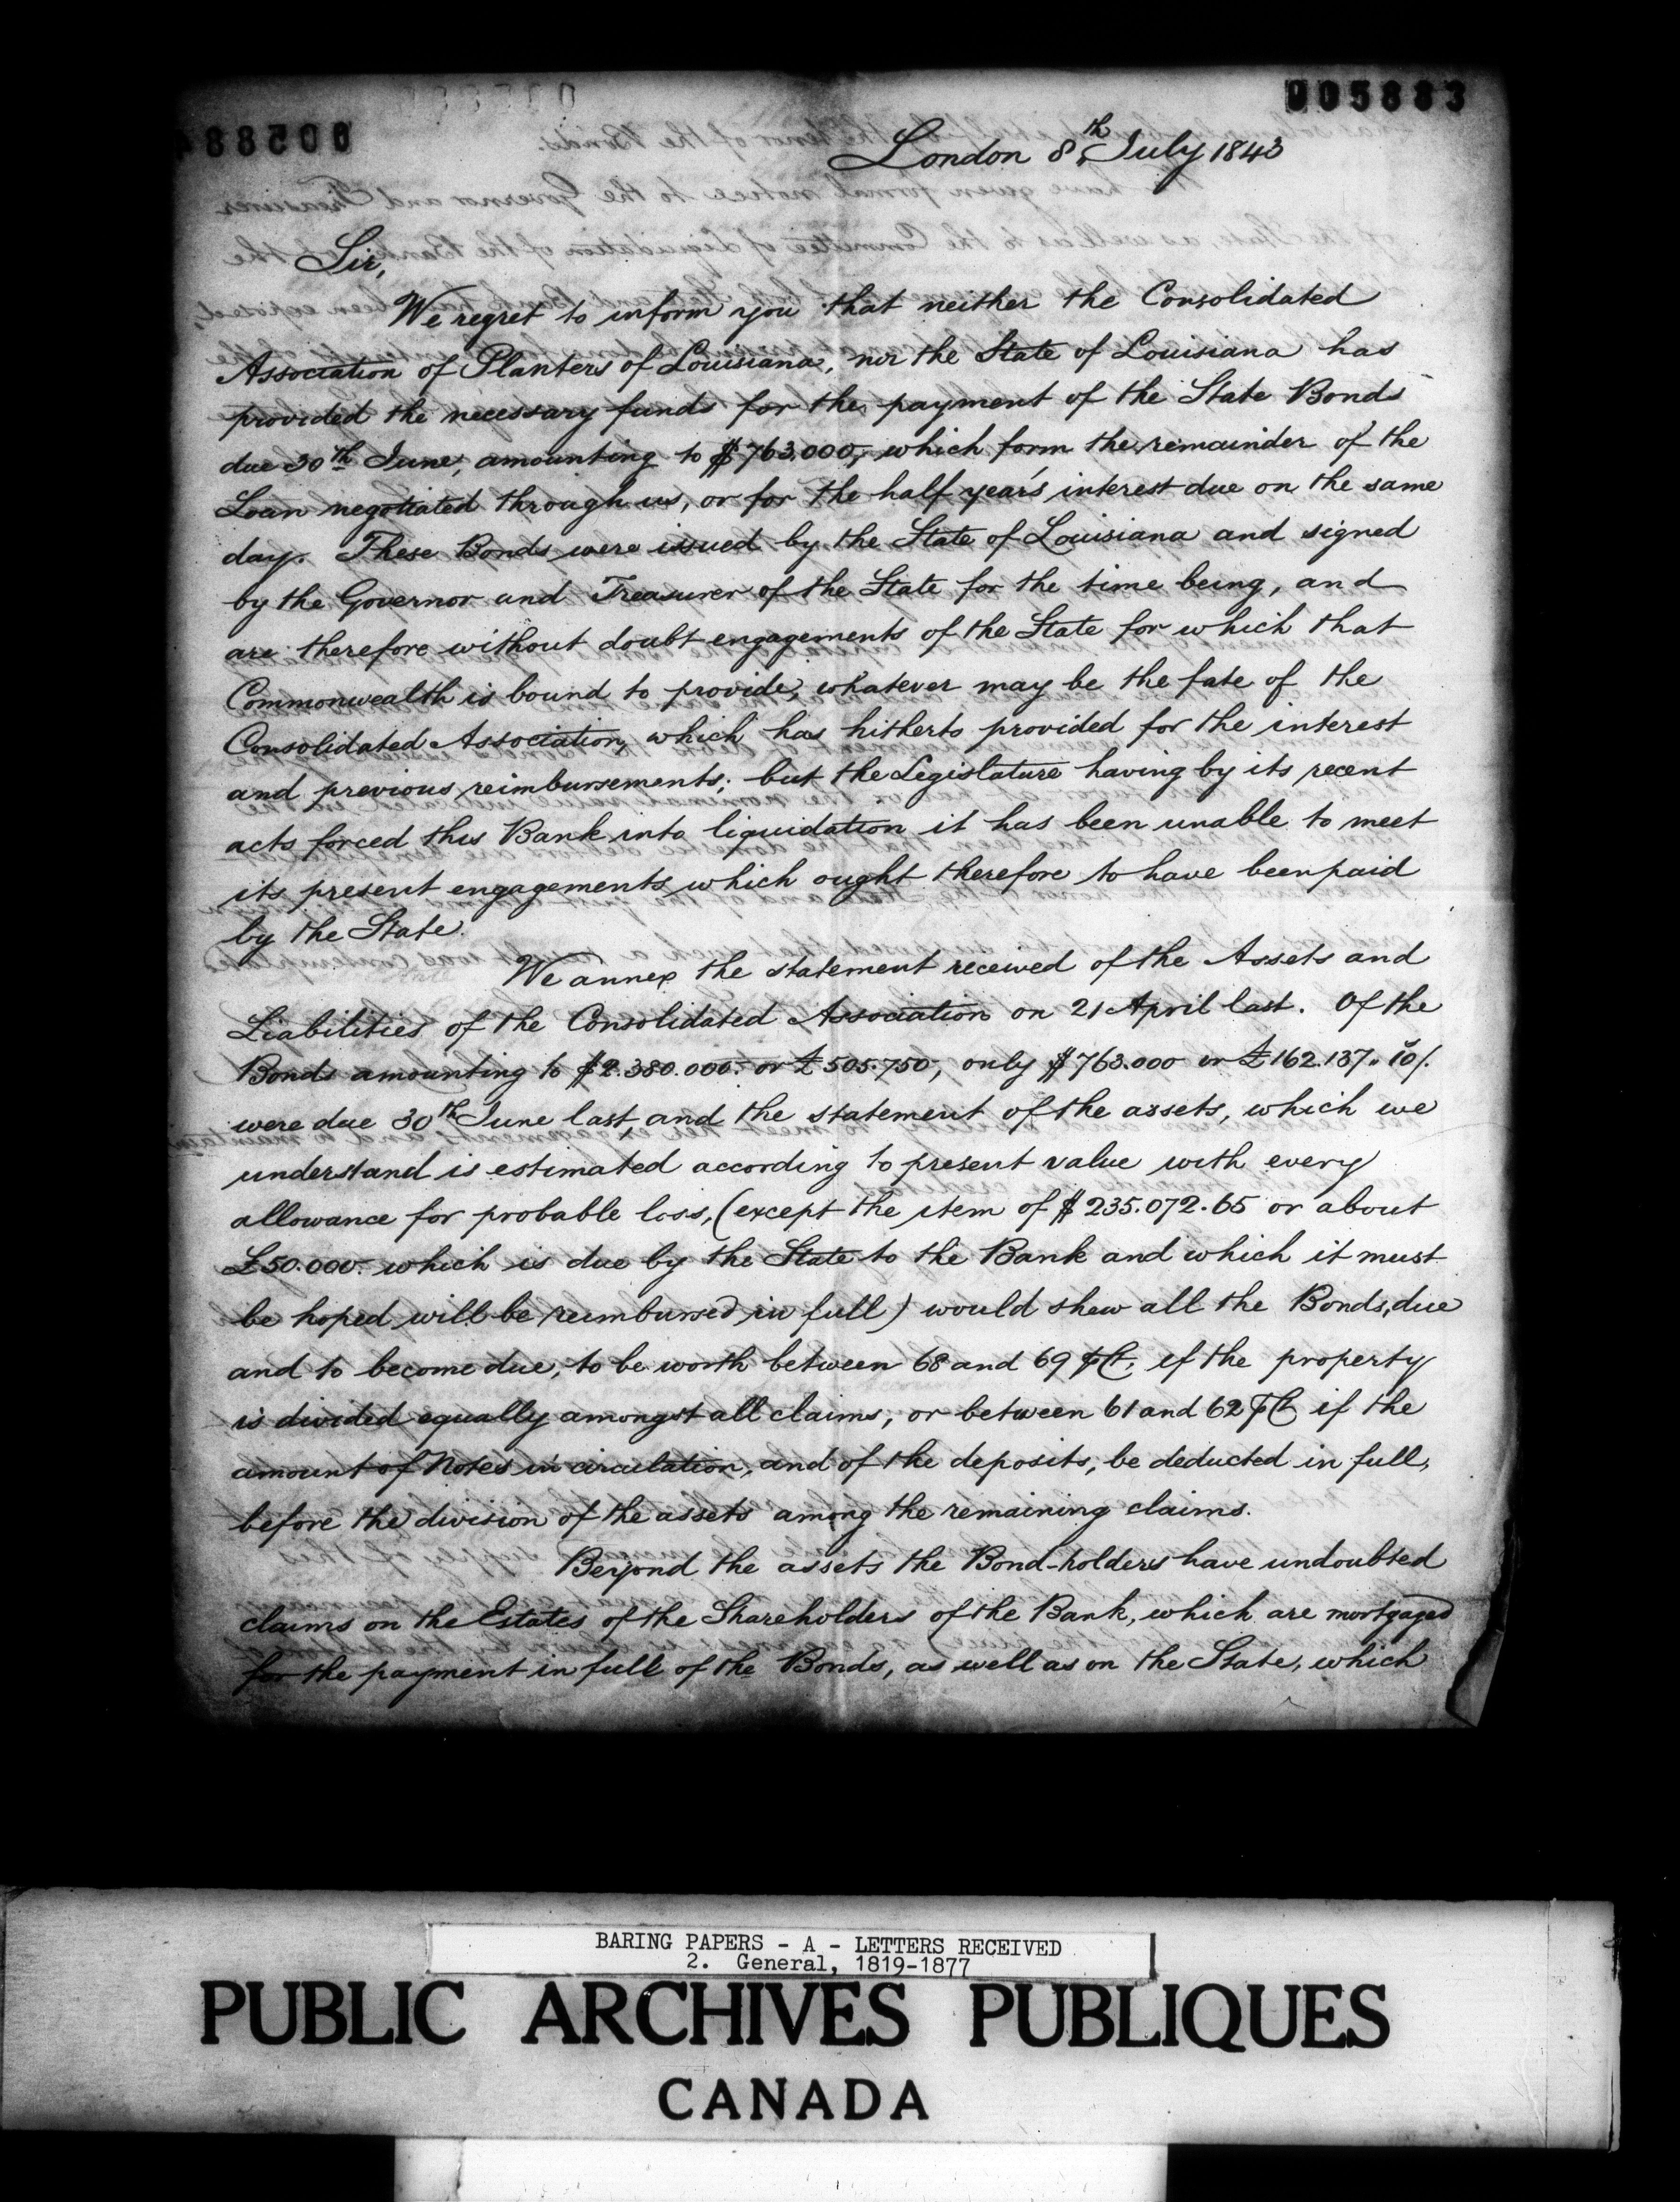 005883
London 8th July 1843
Sir,
We regret to inform you that neither the Consolidated
Association of Planters of Louisiana, nor the State of Louisiana has
provided the necessary funds for the payment of the State Bonds
due 30th June, amounting to $763.000, which form the remainder of the
Loan negotiated through us, or for the half year's interest due on the same
day. These Bonds were issued by the State of Louisiana and signed
by the Governor and Treasurer of the State for the time being, and
are therefore without doubt engagements of the State for which that
Commonwealth is bound to provide, whatever may be the fate of the
Consolidated Association, which has hitherto provided for the interest
and previous reimbursements; but the Legislature having by its recent
acts forced this Bank into liquidation it has been unable to meet
its present engagements which ought therefore to have been paid
by the State.
We annex the statement received of the Assets and
Liabilities of the Consolidated Association on 21 April last. Of the
Bonds amounting to $2.380.000. or £505.750, only $763.000 or £162.137.. 10/.
were due 30th June last, and the statement of the assets, which we
understand is estimated according to present value with every
allowance for probable loss, (except the item of $235.072.65 or about
£50.000. which is due by the State to the Bank and which it must
be hoped will be reimbursed in full) would shew all the Bonds, due
and to become due, to be worth between 68 and 69 ⅌Ct, if the property
is divided equally amongst all claims; or between 61 and 62 ⅌Ct if the
amount of Notes in circulation, and of the deposits, be deducted in full,
before the division of the assets among the remaining claims.
Beyond the assets the Bond-holders have undoubted
claims on the Estates of the Shareholders of the Bank, which are mortgaged
for the payment in full of the Bonds, as well as on the State, which
BARING PAPERS - A - LETTERS RECEIVED
2. General, 1819-1877
PUBLIC ARCHIVES PUBLIQUES
CANADA